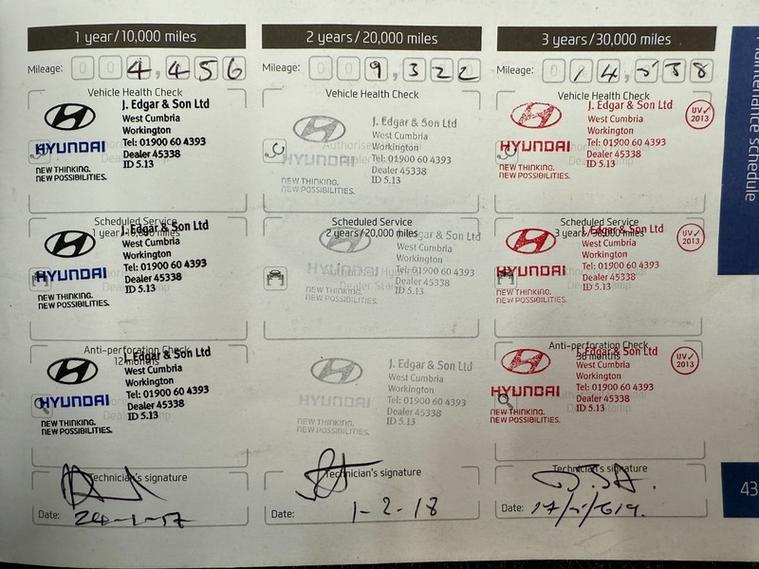 1 year/10,000 miles
Mileage: 004,456
Vehicle Health Check
J. Edgar & Son Ltd
West Cumbria
Workington
HYUNDAI
Tel: 01900 60 4393
Dealer 45338
ID 5.13
NEW THINKING.
NEW POSSIBILITIES.
Scheduled Service
1 year/10,000 miles
J. Edgar & Son Ltd
West Cumbria
Workington
HYUNDAI
Tel: 01900 60 4393
Dealer 45338
ID 5.13
NEW THINKING.
NEW POSSIBILITIES.
Anti-perforation Check
12 months
J. Edgar & Son Ltd
West Cumbria
Workington
HYUNDAI
Tel: 01900 60 4393
Dealer 45338
ID 5.13
NEW THINKING.
NEW POSSIBILITIES.
Technician's signature
Date: 24-1-17
2 years/20,000 miles
Mileage: 009,322
Vehicle Health Check
J. Edgar & Son Ltd
West Cumbria
Workington
HYUNDAI
Tel: 01900 60 4393
Dealer 45338
ID 5.13
NEW THINKING.
NEW POSSIBILITIES.
Scheduled Service
2 years/20,000 miles
J. Edgar & Son Ltd
West Cumbria
Workington
HYUNDAI
Tel: 01900 60 4393
Dealer 45338
ID 5.13
NEW THINKING.
NEW POSSIBILITIES.
J. Edgar & Son Ltd
West Cumbria
Workington
HYUNDAI
Tel: 01900 60 4393
Dealer 45338
ID 5.13
NEW THINKING.
NEW POSSIBILITIES.
Technician's signature
Date: 1-2-18
3 years/30,000 miles
Mileage:
Vehicle Health Check
J. Edgar & Son Ltd
UV✓
2013
West Cumbria
Workington
HYUNDAI
Tel: 01900 60 4393
Dealer 45338
ID 5.13
NEW THINKING.
NEW POSSIBILITIES.
Scheduled Service
3 years/30,000 miles
J. Edgar & Son Ltd
UV✓
2013
West Cumbria
Workington
HYUNDAI
Tel: 01900 60 4393
Dealer 45338
ID 5.13
NEW THINKING.
NEW POSSIBILITIES.
Anti-perforation Check
36 months
J. Edgar & Son Ltd
UV✓
2013
West Cumbria
Workington
HYUNDAI
Tel: 01900 60 4393
Dealer 45338
ID 5.13
NEW THINKING.
NEW POSSIBILITIES.
Technician's signature
Date:
schedule
43